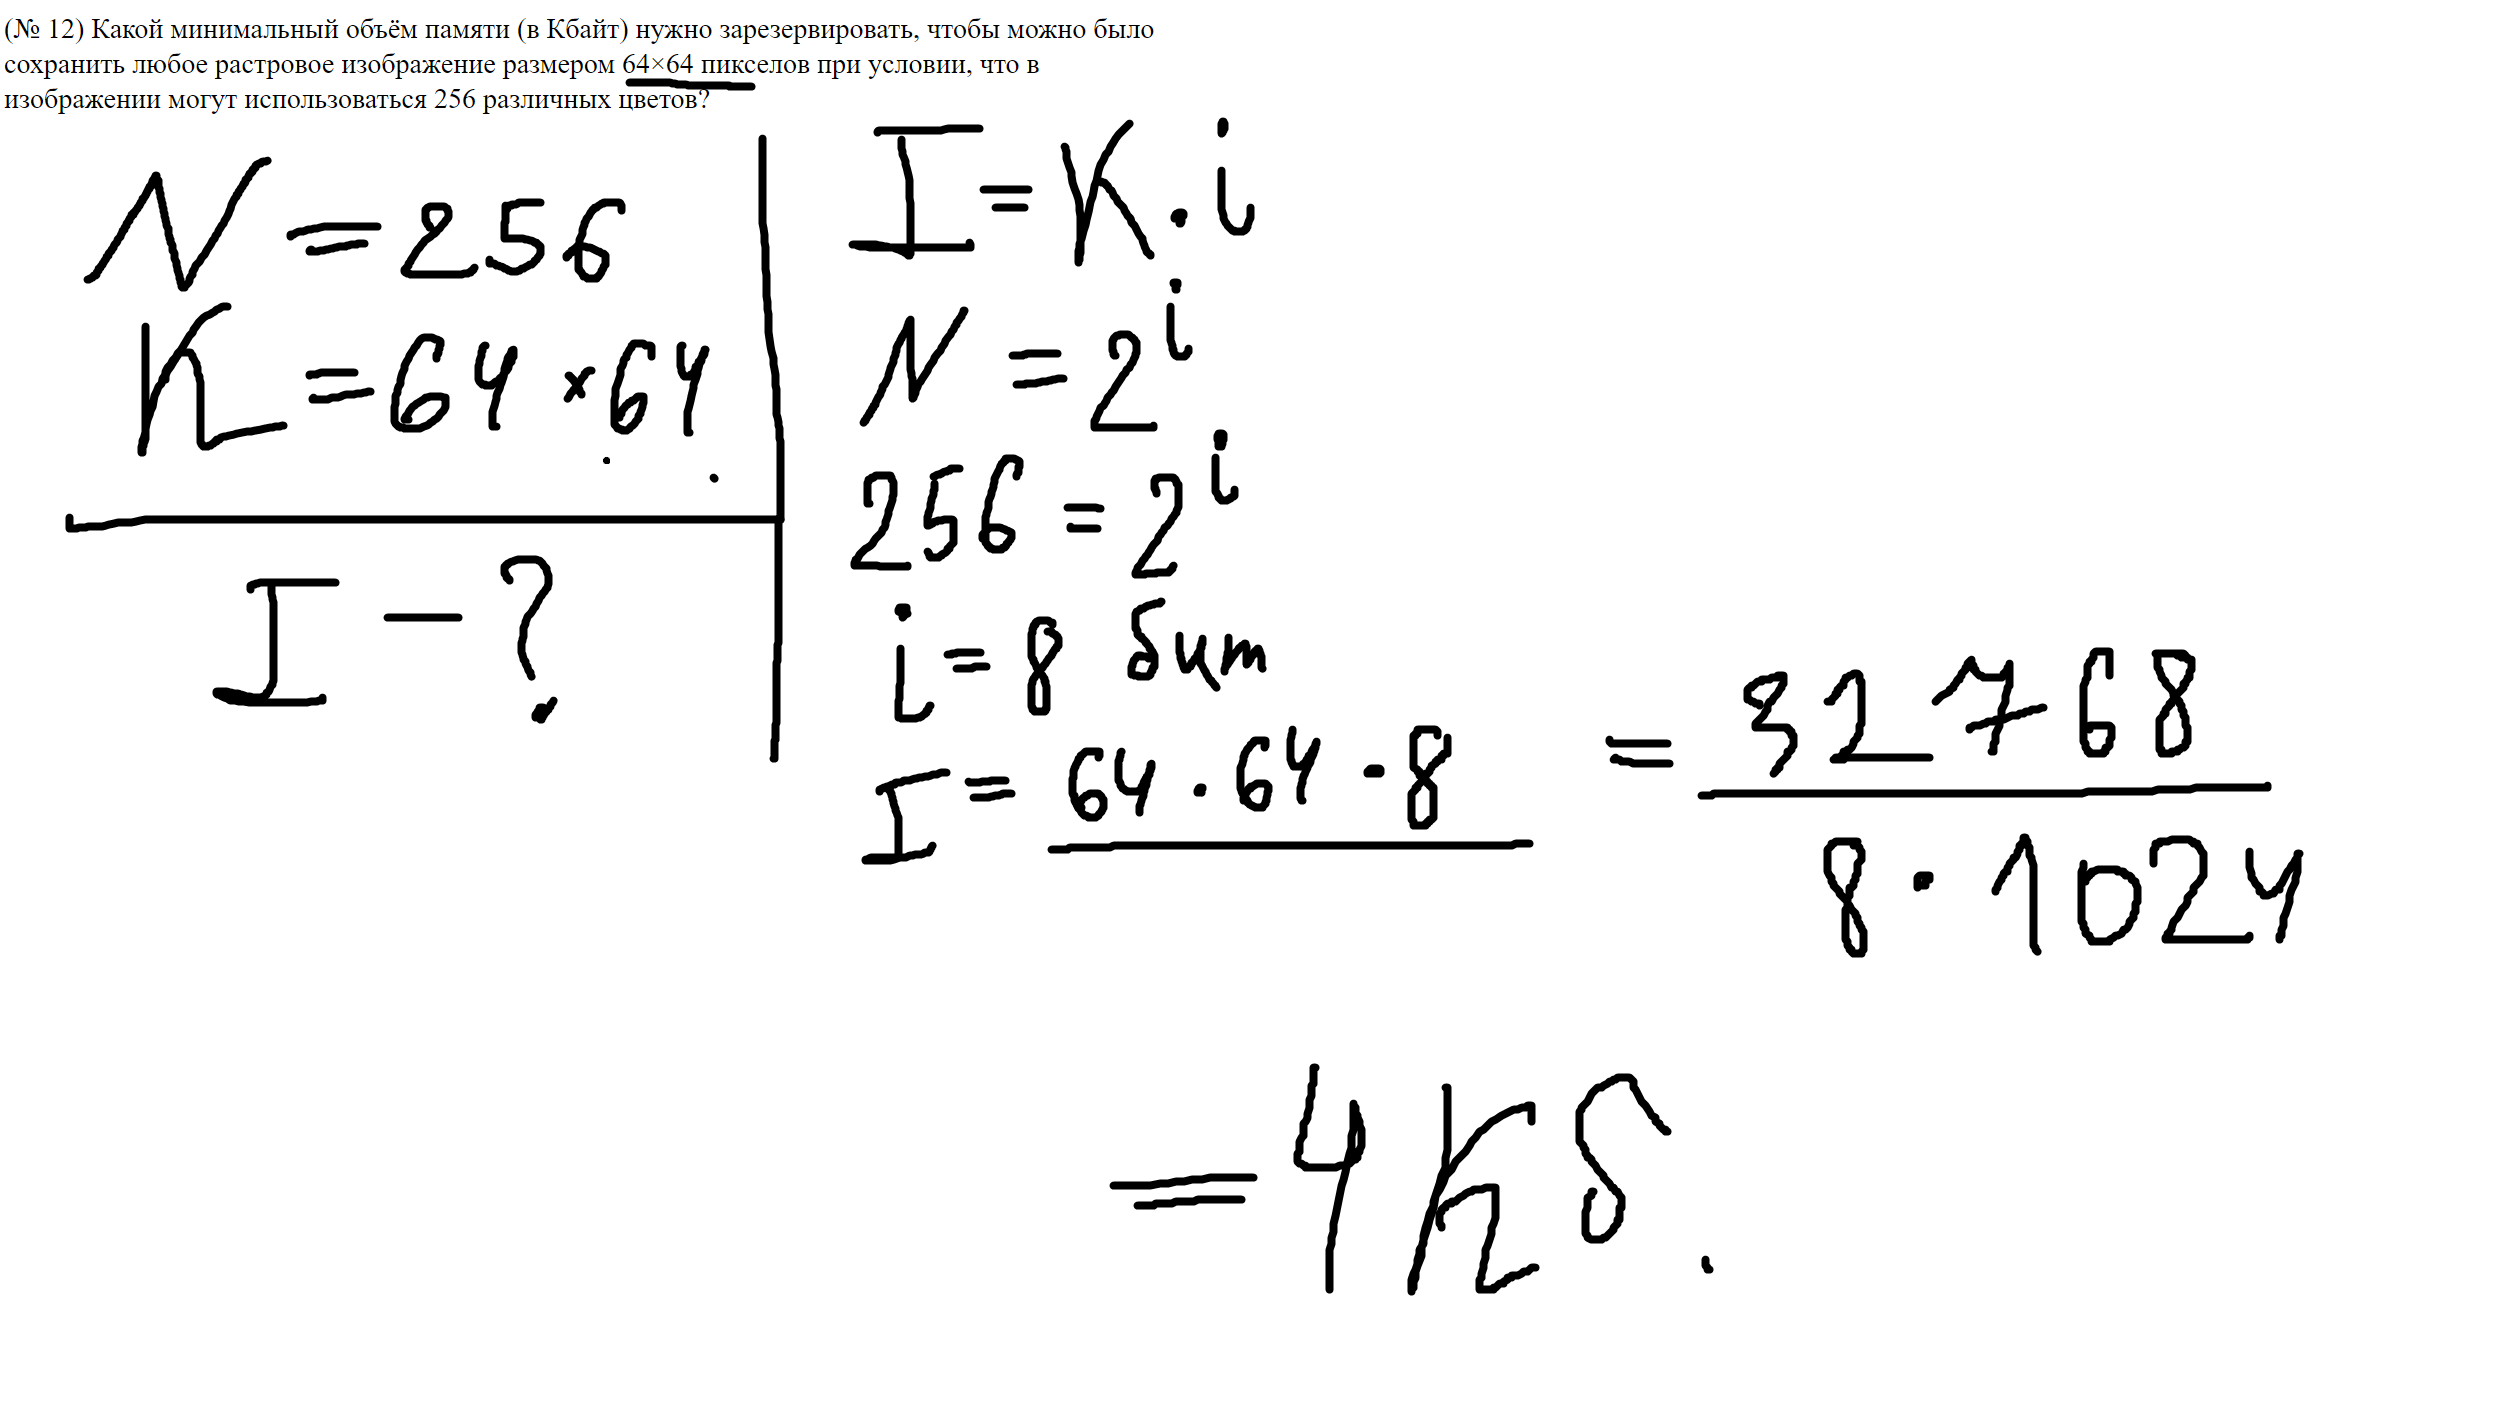 (№ 12) Какой минимальный объём памяти (в Кбайт) нужно зарезервировать, чтобы можно было
сохранить любое растровое изображение размером 64×64 пикселов при условии, что в
изображении могут использоваться 256 различных цветов?
N = 256
K = 64 × 64
I - ?
I = K · i
N = 2^i
256 = 2^i
i = 8 бит
I = 64 · 64 · 8 = 32768
8 · 1024
= 4 Кб.